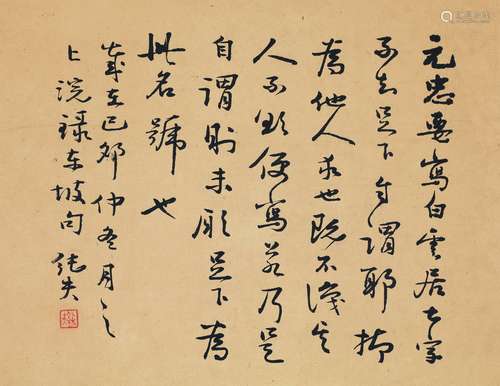 元忠要寫白雲居士字
不知足下自謂耶抑
為他人求也既不識其
人不欲便寫若乃是
自謂則未願足下為
此名號也
歲在己卯仲冬月之
上浣錄东坡句 純夫